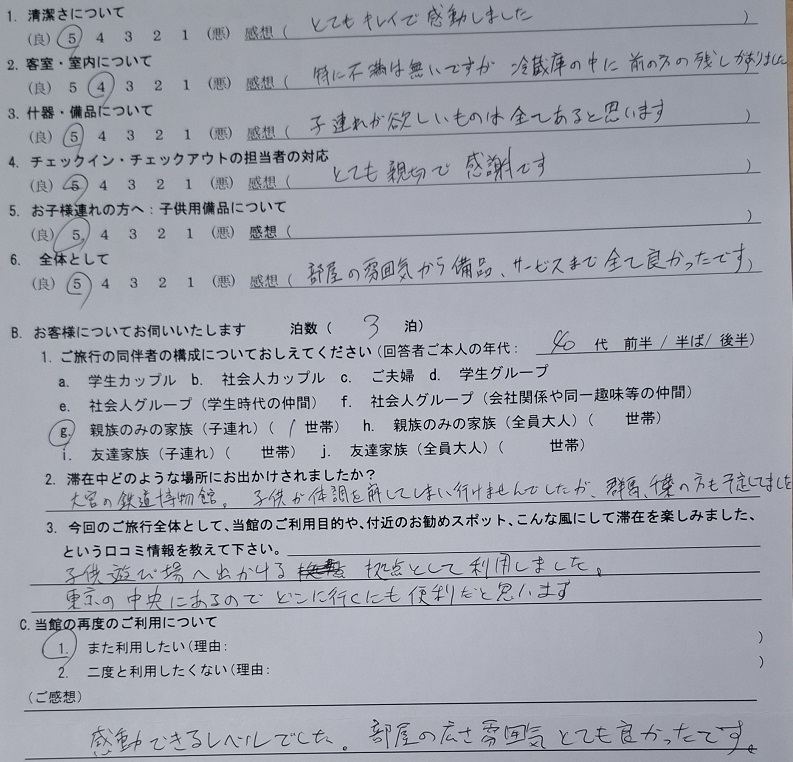 1. 清潔さについて
(良) 5 4 3 2 1 (悪) 感想( とてもキレイで感動しました )
2. 客室・室内について
(良) 5 4 3 2 1 (悪) 感想( 特に不満は無いですが 冷蔵庫の中に前の方の残しがありました
3. 什器・備品について
(良) 5 4 3 2 1 (悪) 感想( 子連れが欲しいものは全てあると思います )
4. チェックイン・チェックアウトの担当者の対応
(良) 5 4 3 2 1 (悪) 感想( とても親切で感謝です )
5. お子様連れの方へ:子供用備品について
(良) 5 4 3 2 1 (悪) 感想( )
6. 全体として
(良) 5 4 3 2 1 (悪) 感想( 部屋の雰囲気から備品、サービスまで全て良かったです、
B. お客様についてお伺いいたします 泊数( 3 泊)
1. ご旅行の同伴者の構成についておしえてください(回答者ご本人の年代: 40 代 前半 / 半ば/ 後半)
a. 学生カップル b. 社会人カップル c. ご夫婦 d. 学生グループ
e. 社会人グループ(学生時代の仲間) f. 社会人グループ(会社関係や同一趣味等の仲間)
g. 親族のみの家族(子連れ)( 1 世帯) h. 親族のみの家族(全員大人)( 世帯)
i. 友達家族(子連れ)( 世帯) j. 友達家族(全員大人)( 世帯)
2. 滞在中どのような場所にお出かけされましたか?
大宮の鉄道博物館。 子供が体調を崩してしまい行けませんでしたが、群馬、千葉の方も予定してました
3. 今回のご旅行全体として、当館のご利用目的や、付近のお勧めスポット、こんな風にして滞在を楽しみました、
という口コミ情報を教えて下さい。
子供遊び場へ出かける 拠点として利用しました。
東京の中央にあるのでどこに行くにも便利だと思います
C. 当館の再度のご利用について
1. また利用したい(理由: )
2. 二度と利用したくない(理由: )
(ご感想)
感動できるレベルでした。部屋の広さ雰囲気とても良かったです。